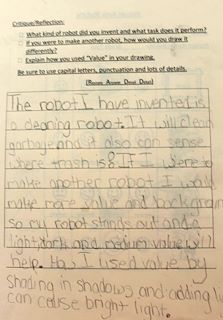 Critique/Reflection:
□ What kind of robot did you invent and what task does it perform?
□ If you were to make another robot, how would you draw it
differently?
□ Explain how you used "Value" in your drawing.
Be sure to use capital letters, punctuation and lots of details.
The robot I have invented is
a cleaning robot. It will clean
garbage and it also can sense
where trash is & If I were to
make another robot I would
make more value and background
so my robot stands out and a
light, dark and medium value will
help. I used value by
shading in shadows and adding
can cause bright light.